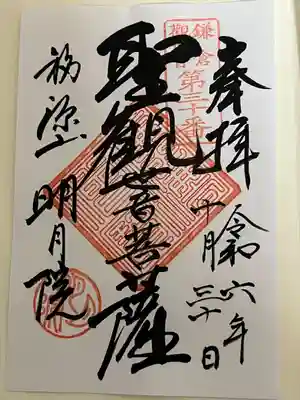 奉拝
令和六年
十月三十日
鎌倉
観音
第三十番
聖観世音菩薩
福源山
明月院